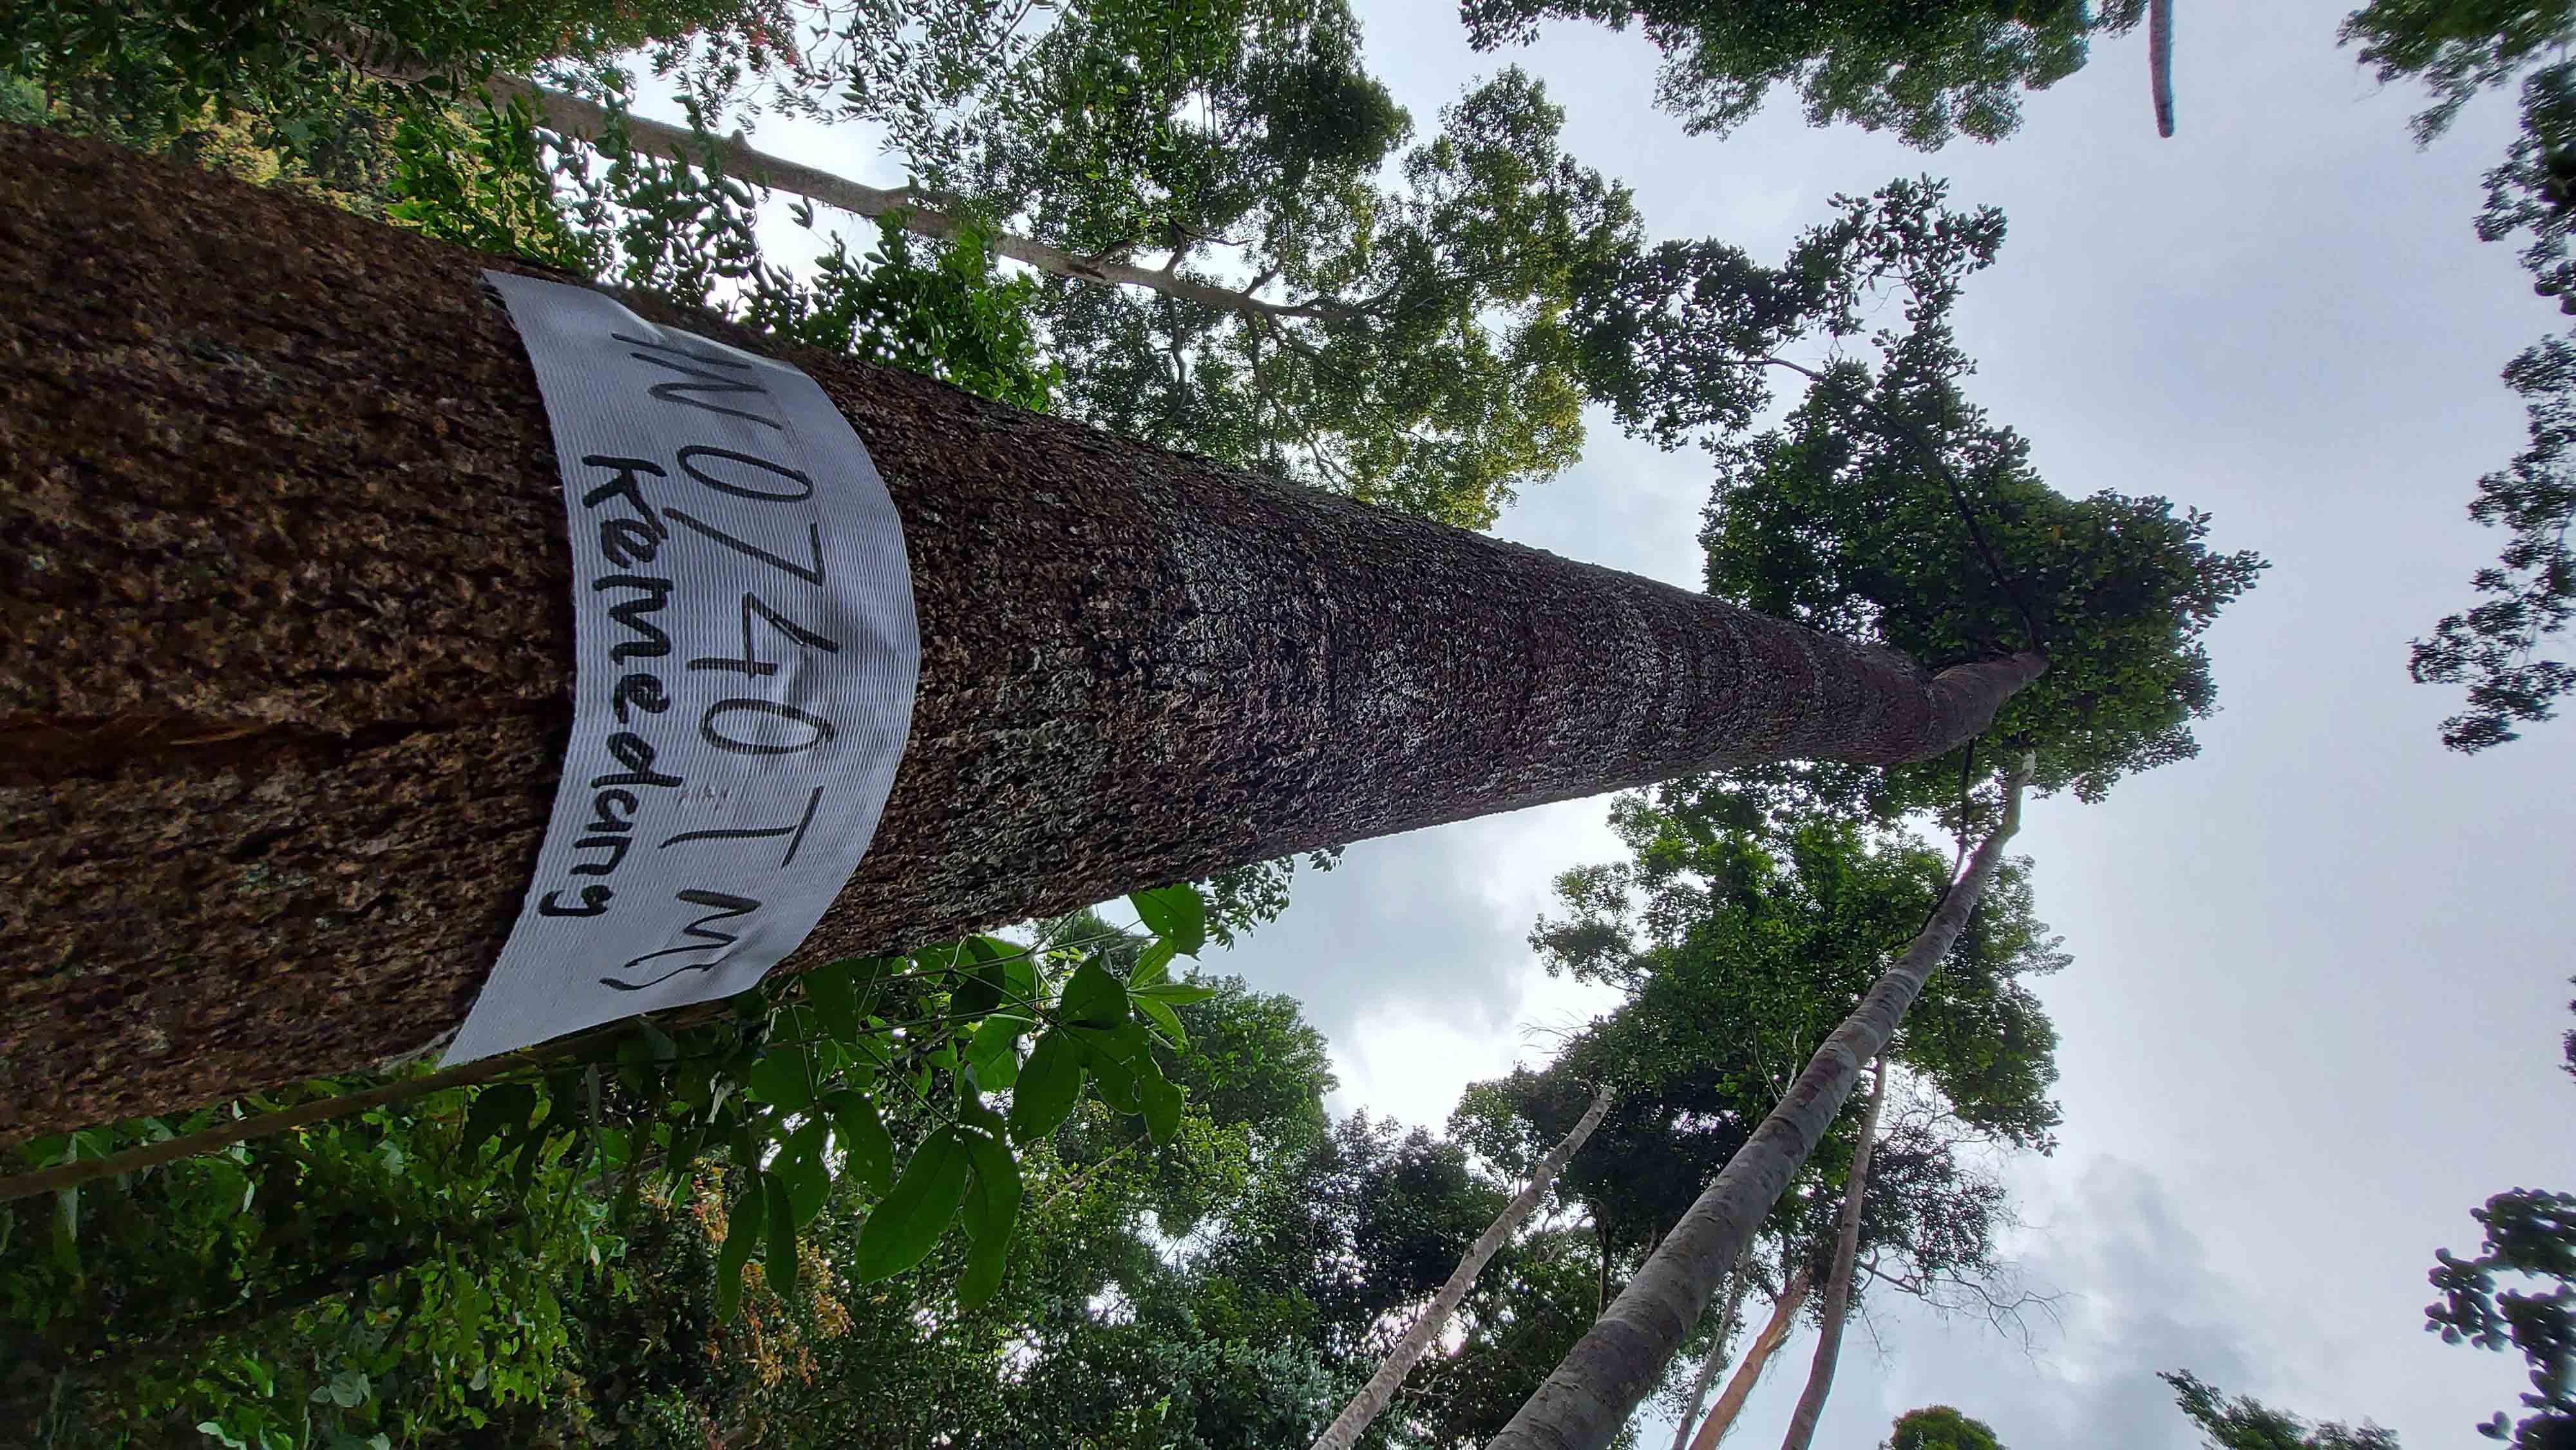 IW 0740 TMS
Kemedung